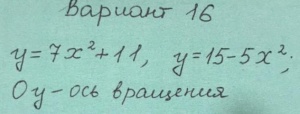 Вариант 16
y=7x²+11, y=15-5x²;
Oy-ось вращения